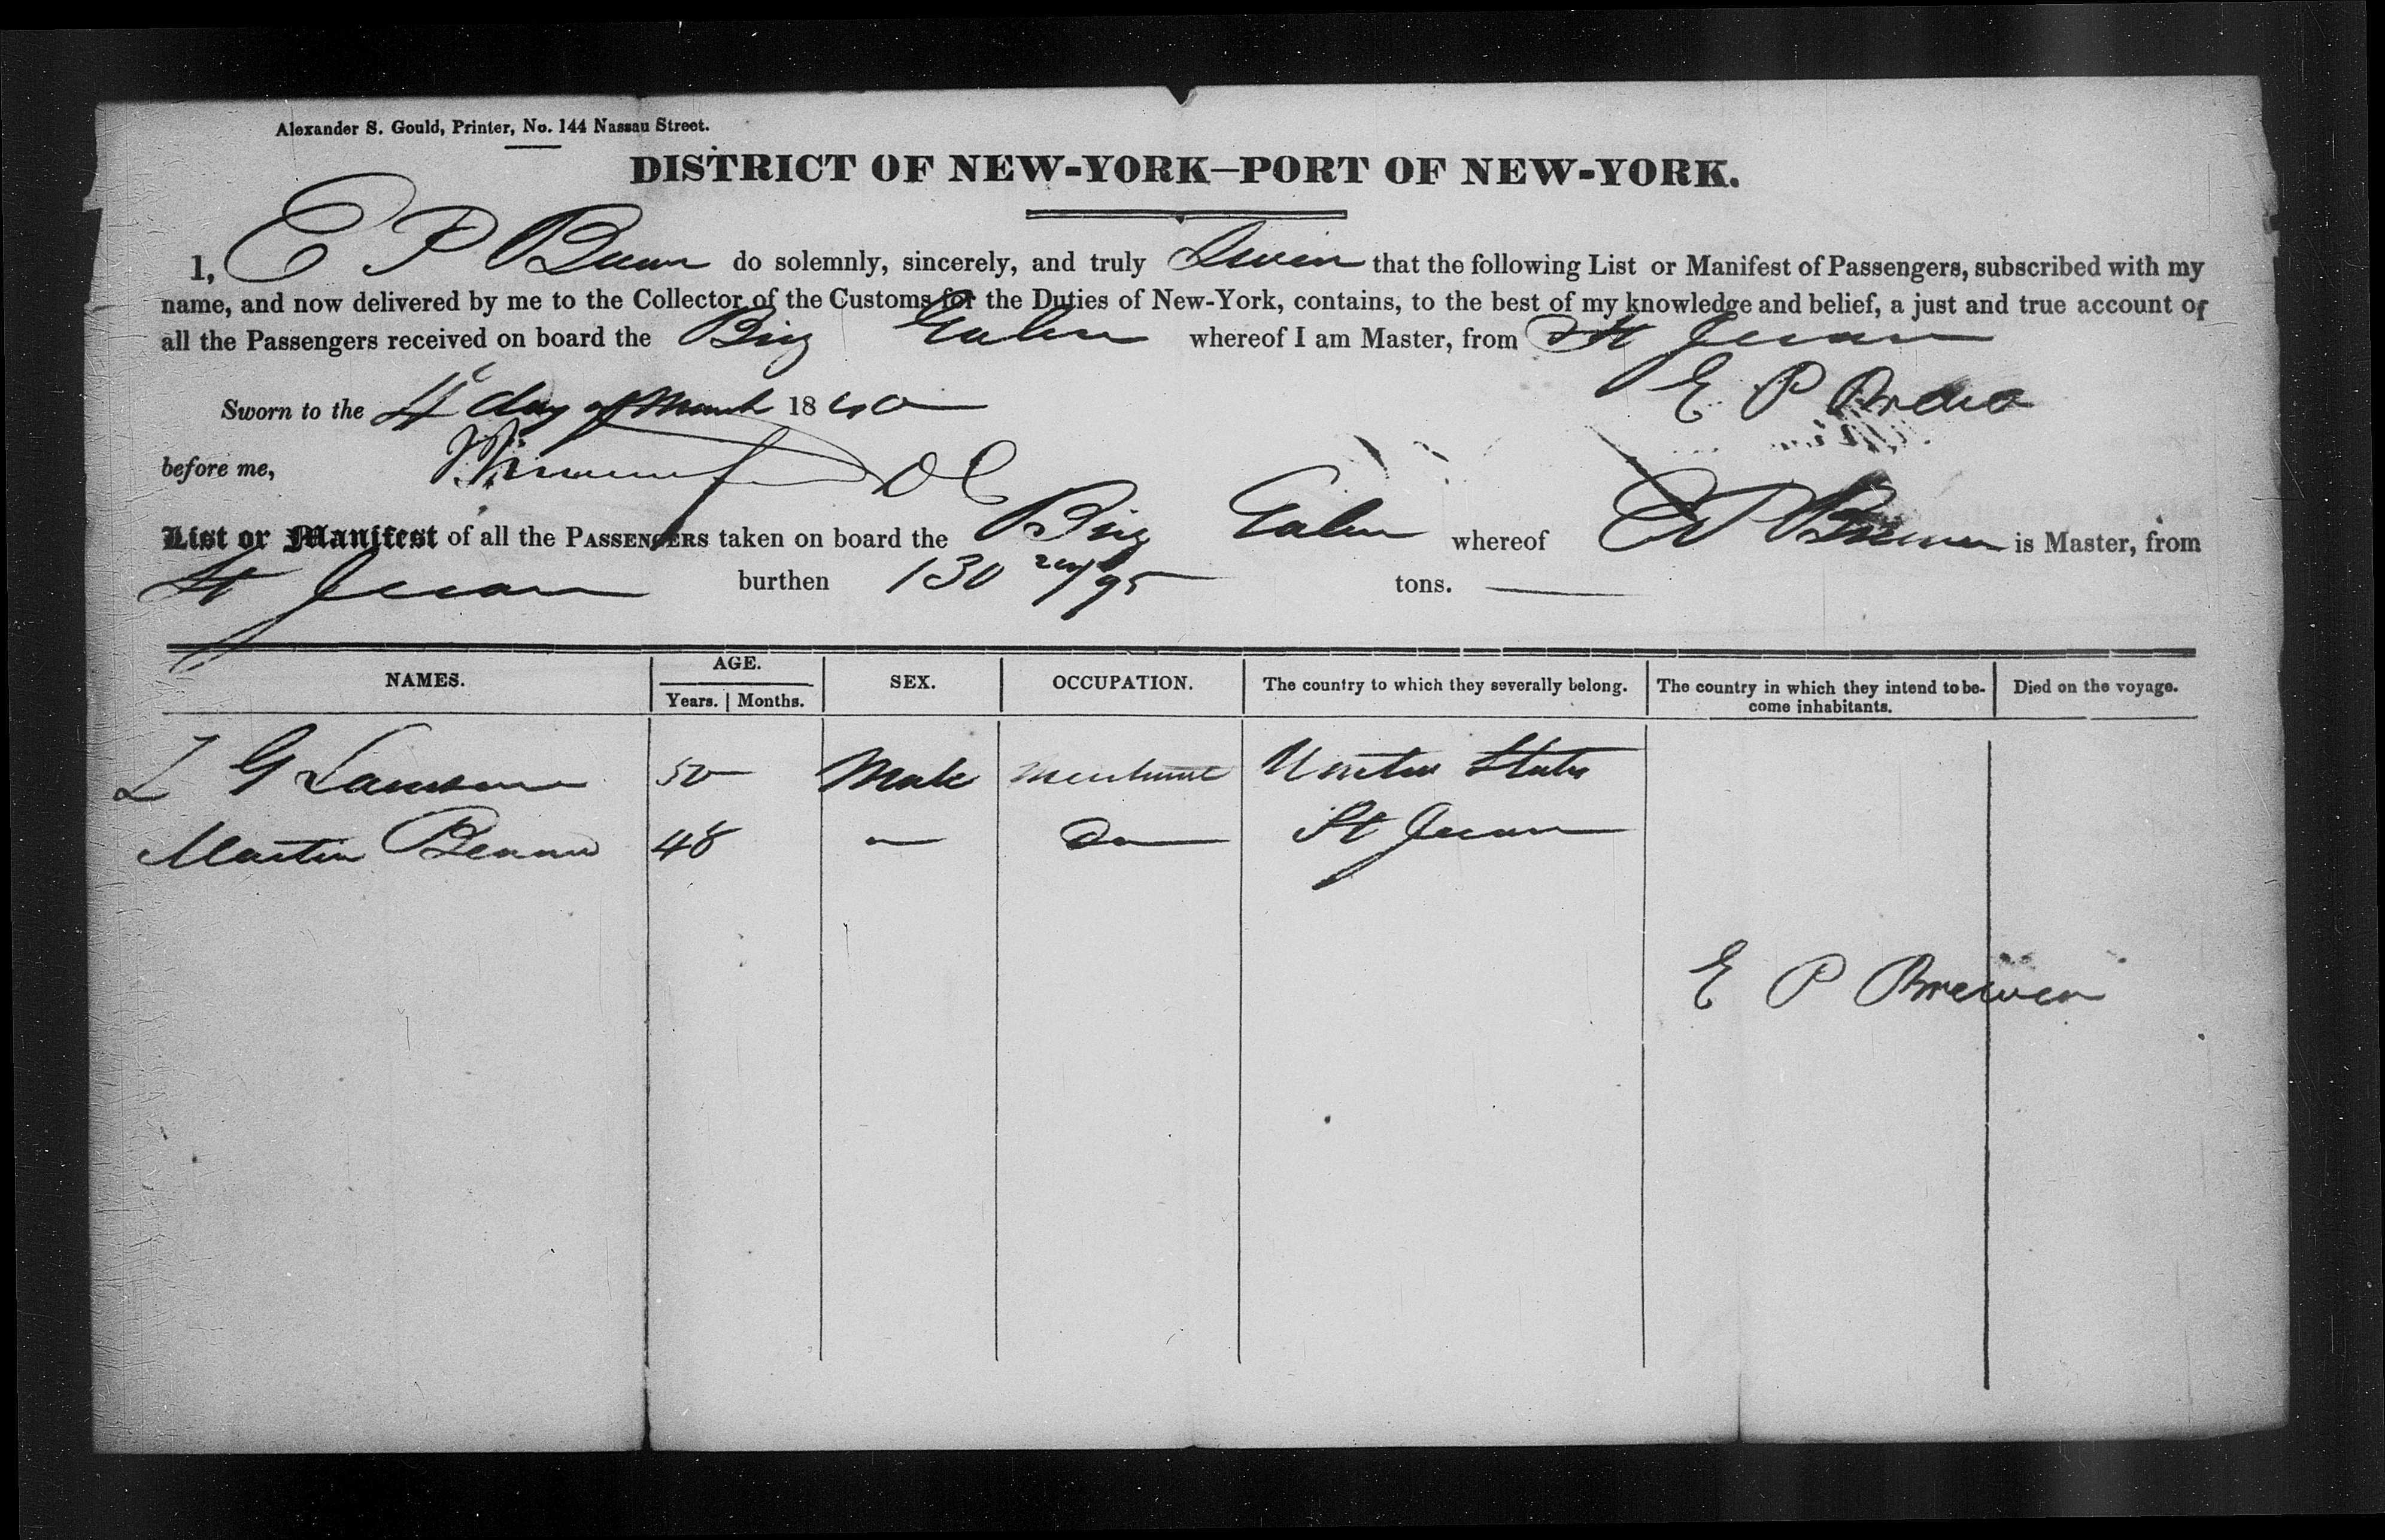 Alexander S. Gould, Printer, No. 144 Nassau Street.
DISTRICT OF NEW-YORK—PORT OF NEW-YORK.
I, E P Brewer do solemnly, sincerely, and truly Swear that the following List or Manifest of Passengers, subscribed with my
name, and now delivered by me to the Collector of the Customs for the Duties of New-York, contains, to the best of my knowledge and belief, a just and true account of
all the Passengers received on board the Brig whereof I am Master, from St Juan
Sworn to the 4 day of March 1840
E P Brewer
before me, DC
List or Manifest of all the PASSENGERS taken on board the Brig whereof E P Brewer is Master, from
St Juan burthen 130 /95 tons.
NAMES. AGE. SEX. OCCUPATION. The country to which they severally belong. The country in which they intend to become inhabitants. Died on the voyage.
Years. Months.
L G 50 Male Merchant United States
Martin 48 Do St Juan
E P Brewer